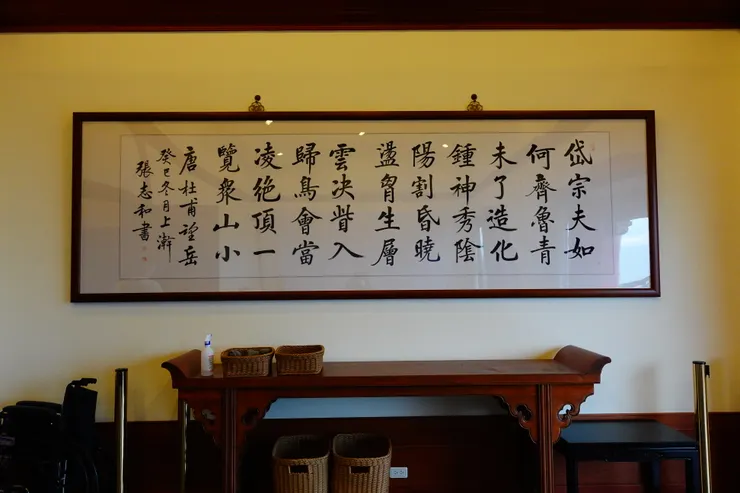 岱宗夫如
何齊魯青
未了造化
鍾神秀陰
陽割昏曉
盪胷生層
雲決眥入
歸鳥會當
凌絕頂一
覽衆山小
唐杜甫望岳
癸巳冬月上澣
張志和書